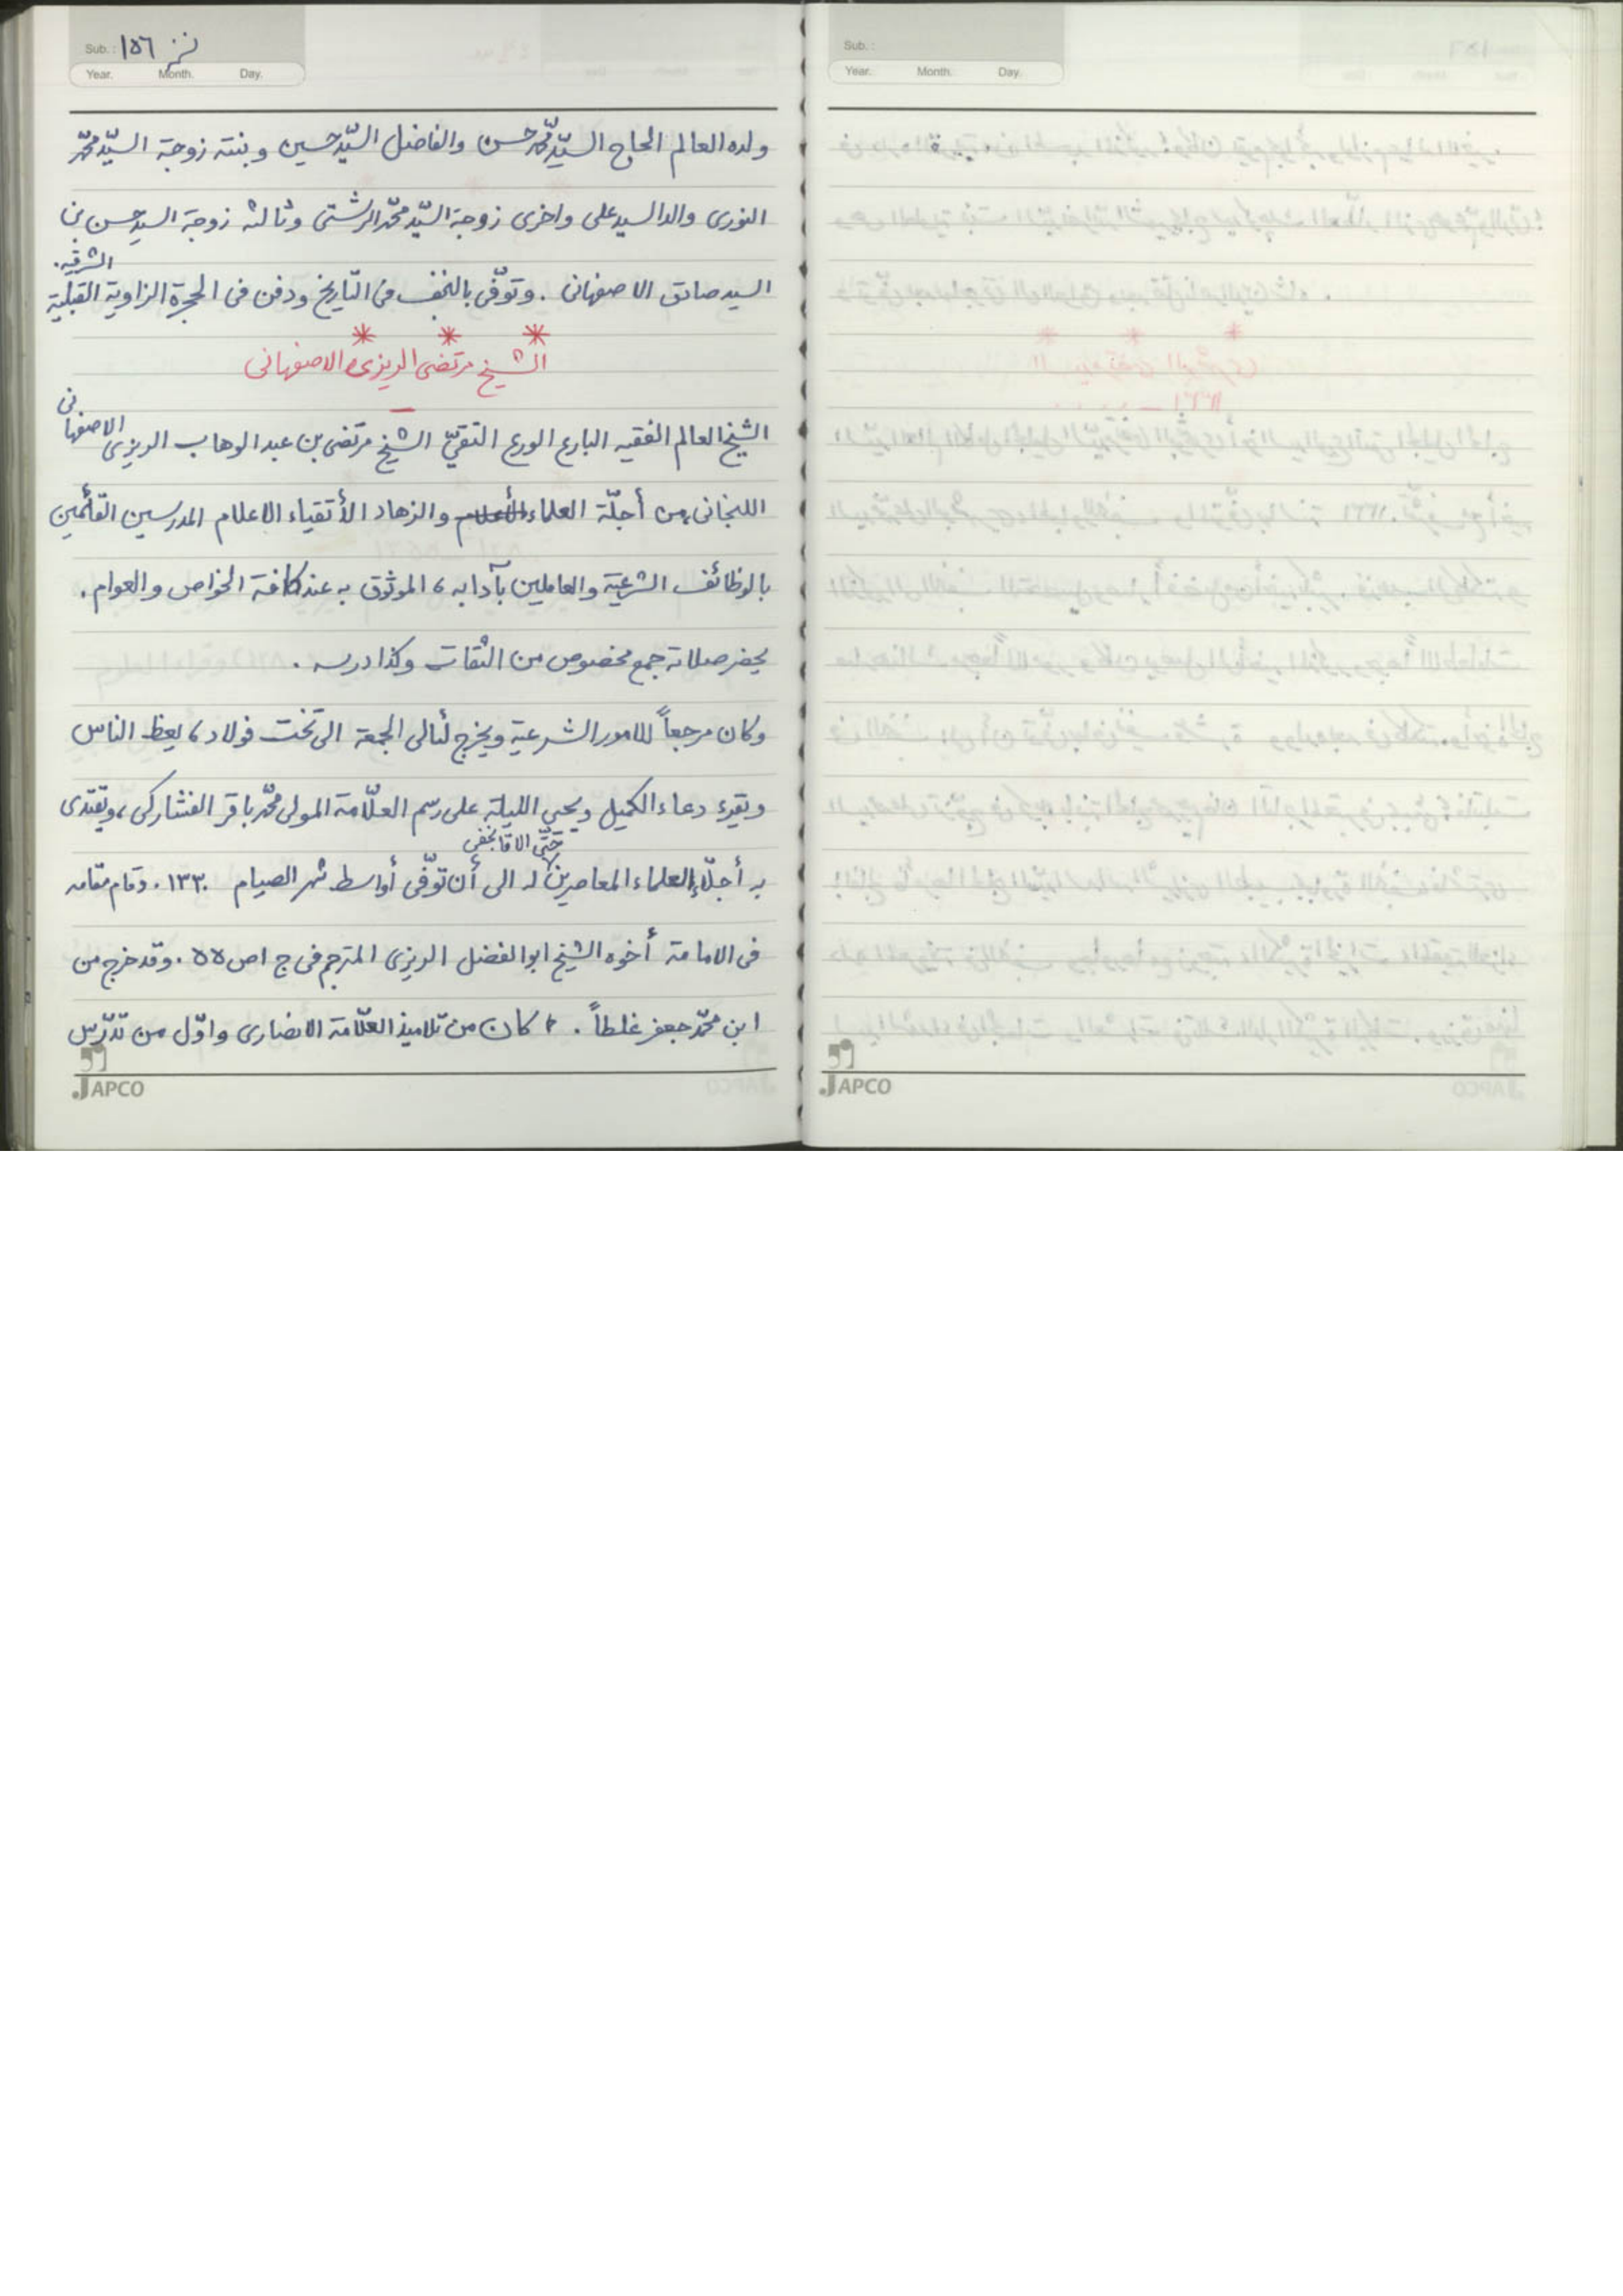 Sub. : ١٥٦
Year. Month. Day.
ولده العالم الحاج السيّد محمّد حسن والفاضل السيّد حسين وبنته زوجة السيّد محمّد
النوری والد السيد علی واخری زوجة السيّد محمّد الرشتی وثالثه زوجة السيد حسن بن
السيد صادق الاصفهانی . وتوفّی بالنجف فی التّاريخ ودفن فی الحجرة الزاوية القبلية
الشرقية .
* * *
الشيخ مرتضی الريزی الاصفهانی
الشيخ العالم الفقيه البارع الورع التقيّ الشيخ مرتضی بن عبد الوهاب الريزی الاصفهانی
اللنجانی من أجلّة العلماء الأعلام والزهاد الأتقياء الاعلام المدرسين القائمين
بالوظائف الشرعية والعاملين بآدابه ، الموثوق به عند كافة الخواص والعوام .
يحضر صلاته جمع مخصوص من الثقات وكذا درسه .
وكان مرجعاً للامور الشرعية ويخرج ليالی الجمعة الی تخت فولاد ، يعظ الناس
ويقرء دعاء الكميل ويحيي الليلة علی رسم العلّامة المولی محمّد باقر الفشاركی ، ويقتدی
حتّی الاقا نجفی
به أجلّاء العلماء المعاصرين له الی أن توفّی أواسط شهر الصيام ١٣٣٠ . وقام مقامه
فی الامامة أخوه الشيخ ابو الفضل الريزی المترجم فی ج ١ ص ٥٥ . وقد خرج من
ابن محمّد جعفر غلطاً . ٢ كان من تلاميذ العلّامة الانصاری واوّل من تدرّس
JAPCO
Sub. :
Year. Month. Day.
JAPCO